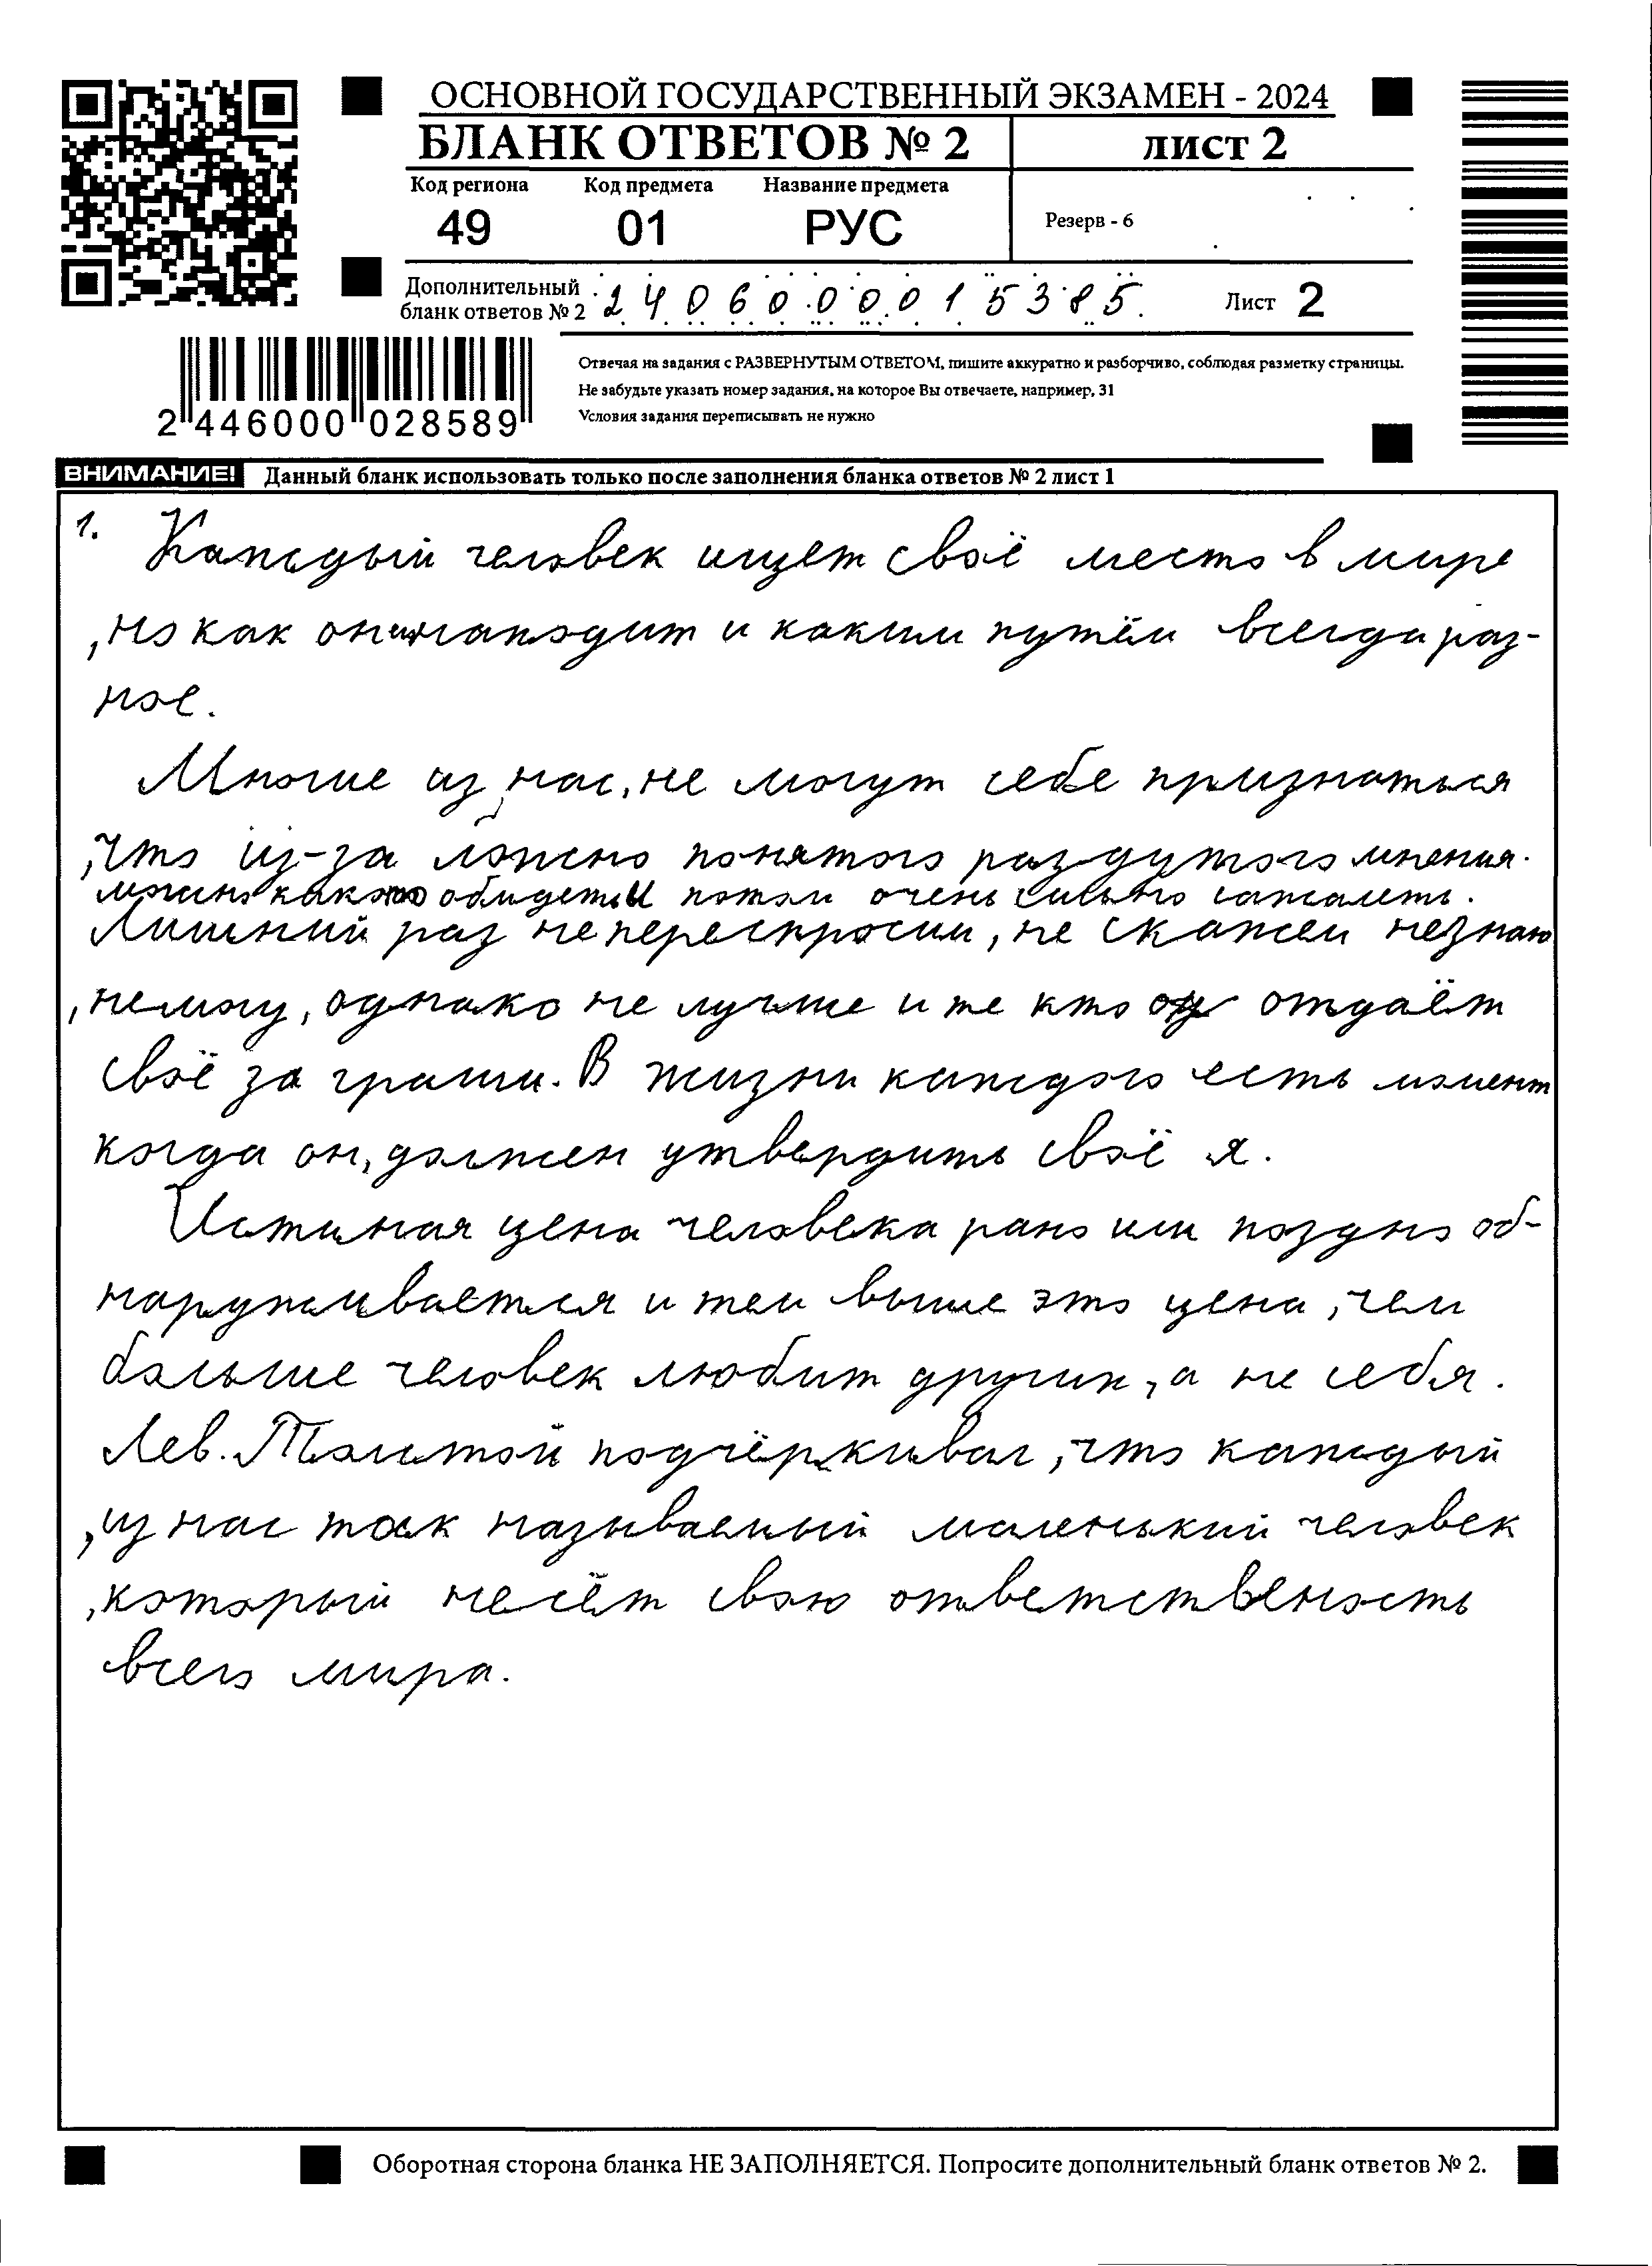 ОСНОВНОЙ ГОСУДАРСТВЕННЫЙ ЭКЗАМЕН - 2024
БЛАНК ОТВЕТОВ № 2
ЛИСТ 2
Код региона Код предмета Название предмета
49 01 РУС
Резерв - 6
Дополнительный
бланк ответов № 2
2406000015385
Лист 2
Отвечая на задания с РАЗВЕРНУТЫМ ОТВЕТОМ, пишите аккуратно и разборчиво, соблюдая разметку страницы.
Не забудьте указать номер задания, на которое Вы отвечаете, например, 31
Условия задания переписывать не нужно
2 446000 028589
ВНИМАНИЕ! Данный бланк использовать только после заполнения бланка ответов № 2 лист 1
1. Каждый человек ищет своё место в мире
,но как он находит и каким путём всегда раз-
ное.
Многие из нас, не могут себе признаться
,что из-за ложно понятого раздутого мнения.
можно обидеть и потом очень сильно сожалеть.
Лишний раз не переспросим, не скажем незнаю
,немогу, однако не лучше и те кто отдаёт
своё за гроши. В жизни каждого есть момент
когда он, должен утвердить своё я.
Истиная цена человека рано или поздно об-
наруживается и тем выше это цена, чем
больше человек любит других, а не себя.
Лев. Толстой подчёркивал, что каждый
,из нас так называемый маленький человек
,который несёт свою ответственость
всего мира.
Оборотная сторона бланка НЕ ЗАПОЛНЯЕТСЯ. Попросите дополнительный бланк ответов № 2.